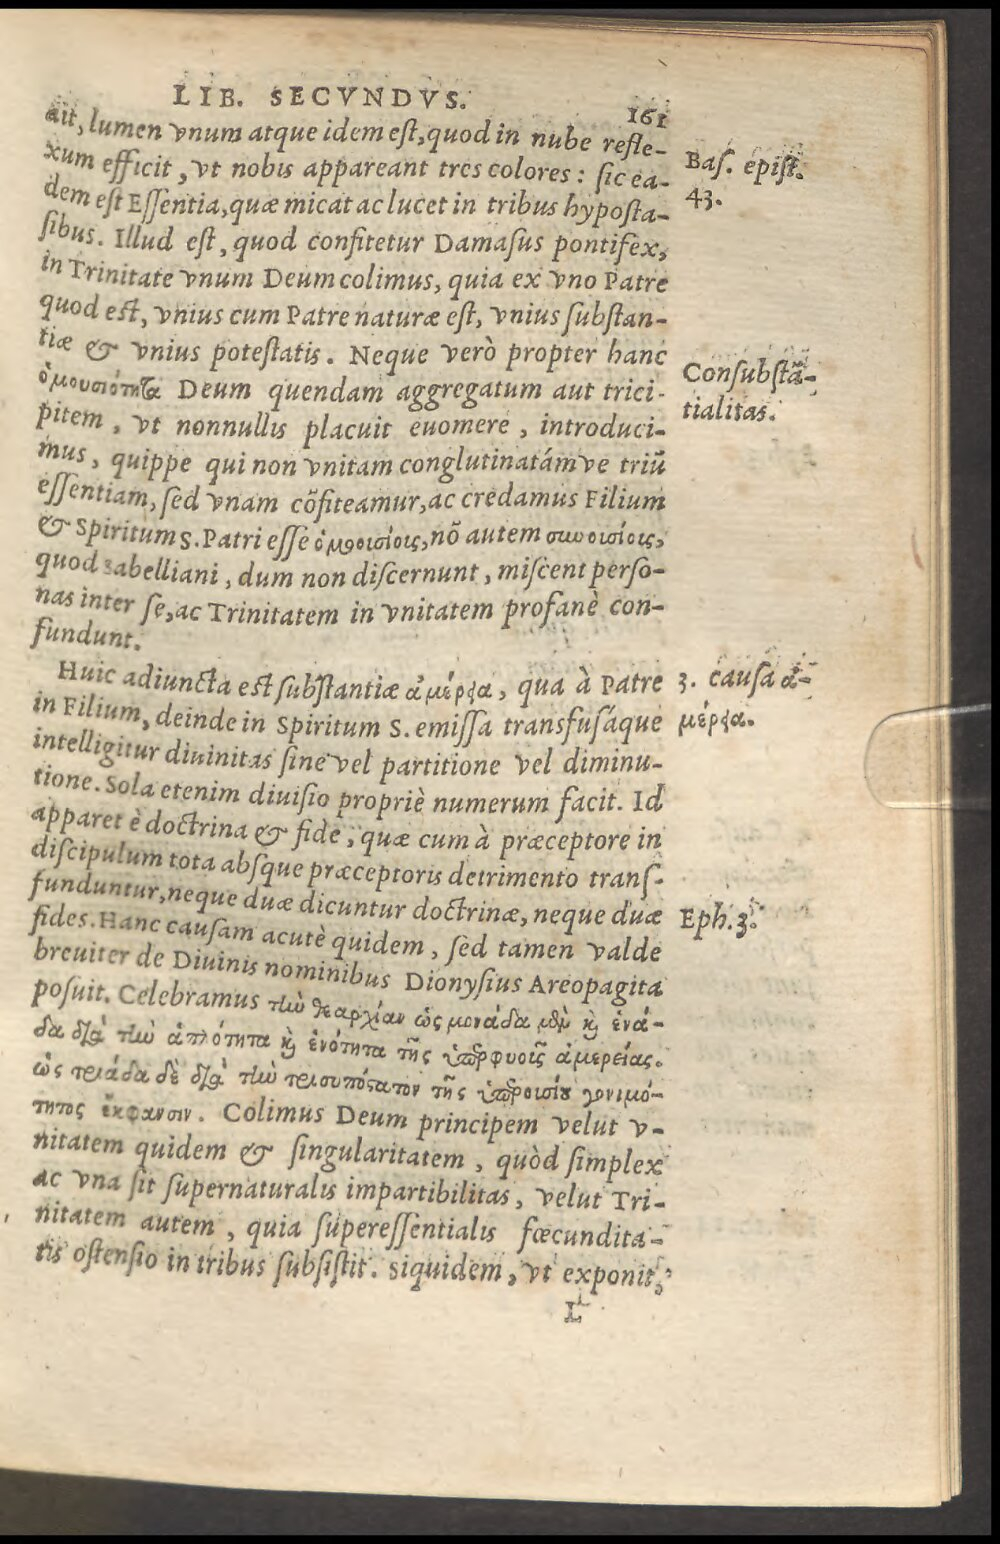 LIB. SECVNDVS.
161
ait, lumen vnum atque idem est, quod in nube refle-
xum efficit, vt nobis appareant tres colores: sic ea-
dem est Essentia, quæ micat ac lucet in tribus hyposta-
sibus. Illud est, quod confitetur Damasus pontifex,
in Trinitate vnum Deum colimus, quia ex vno Patre
quod est, vnius cum Patre naturæ est, vnius substan-
tiæ & vnius potestatis. Neque verò propter hanc
ὁμουσιότητα Deum quendam aggregatum aut trici-
pitem, vt nonnullis placuit euomere, introduci-
mus, quippe qui non vnitam conglutinatámve triũ
essentiam, sed vnam cõfiteamur, ac credamus Filium
& Spiritum S. Patri esse ὁμοουσίοις, nõ autem συνουσίοις,
quod Sabelliani, dum non discernunt, miscent perso-
nas inter se, ac Trinitatem in vnitatem profanè con-
fundunt.
Huic adiuncta est substantiæ ἀμέρεια, qua à Patre
in Filium, deinde in Spiritum S. emissa transfusáque
intelligitur diuinitas sine vel partitione vel diminu-
tione. Sola etenim diuisio propriè numerum facit. Id
apparet è doctrina & fide, quæ cum à præceptore in
discipulum tota absque præceptoris detrimento trans-
funduntur, neque duæ dicuntur doctrinæ, neque duæ
fides. Hanc causam acutè quidem, sed tamen valde
breuiter de Diuinis nominibus Dionysius Areopagita
posuit. Celebramus τὴν θεαρχίαν ὡς μονάδα μὲν καὶ ἑνά-
δα διὰ τὴν ἁπλότητα καὶ ἑνότητα τῆς ὑπερφυοῦς ἀμερείας.
ὡς τριάδα δὲ διὰ τὴν τρισυπόστατον τῆς ὑπερουσίου γονιμό-
τητος ἔκφανσιν. Colimus Deum principem velut v-
nitatem quidem & singularitatem, quòd simplex
ac vna sit supernaturalis impartibilitas, velut Tri-
nitatem autem, quia superessentialis fœcundita-
tis ostensio in tribus subsistit. Siquidem, vt exponit,
L
Bas. epist.
43.
Consubstã-
tialitas.
3. causa ἀ-
μέρεια.
Eph. 3.